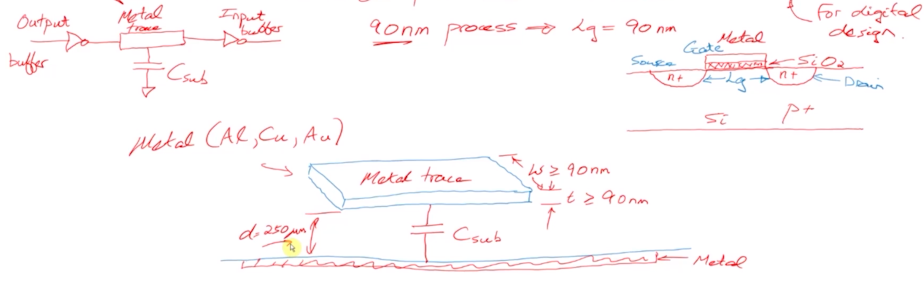 Output
buffer
Metal
trace
Input
buffer
Csub
90nm process → Lg = 90nm
For digital
design.
Gate
Metal
Source
SiO2
n+
Lg
n+
Drain
Si
p+
Metal (Al, Cu, Au)
Metal trace
w ≥ 90nm
t ≥ 90nm
d = 250 µm
Csub
Metal